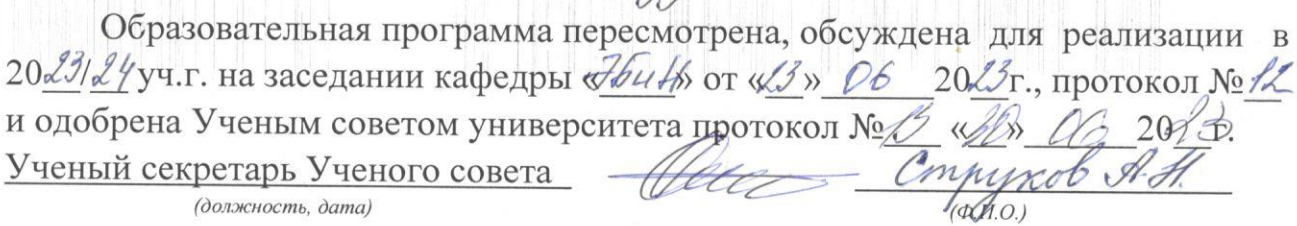 Образовательная программа пересмотрена, обсуждена для реализации в
2023/24 уч.г. на заседании кафедры от «23» 06 2023г., протокол №12
и одобрена Ученым советом университета протокол №13 «30» 06 2023 г.
Ученый секретарь Ученого совета Струков А.Н.
(должность, дата) (Ф.И.О.)